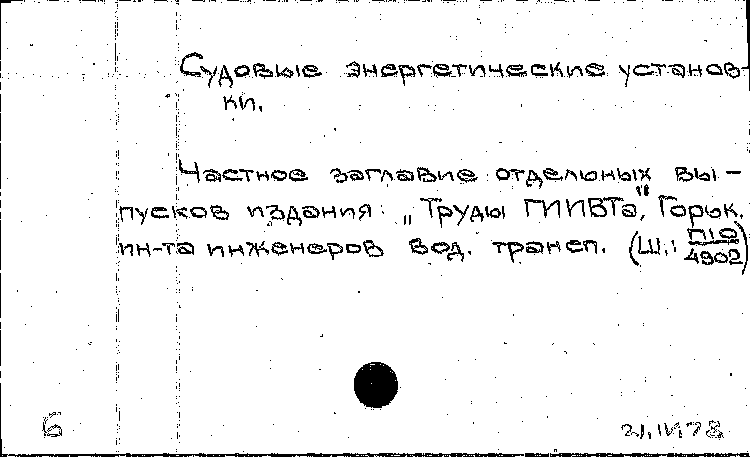 Судовые энергетические установ-
ки.
Частное заглавие отдельных вы-
пусков издания: „Труды ГИИВТа", Горьк.
ин-та инженеров вод. трансп. (Ш.: П19/4902)
6